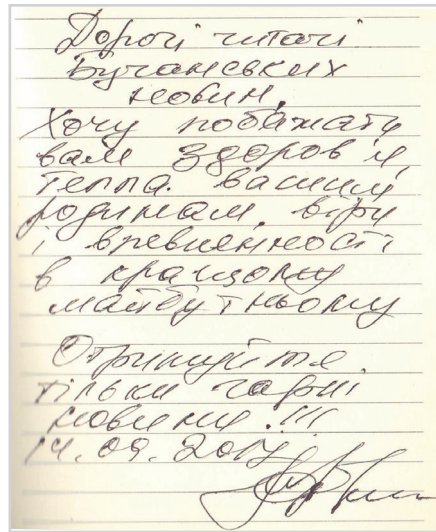 Дорогі читачі
Бучанських
новин,
Хочу побажати
вам здоров'я,
тепла вашим
родинам, віри
і впевненності
в кращому
майбутньому
Отримуйте
тільки гарні
новини!!!
14.09.2017